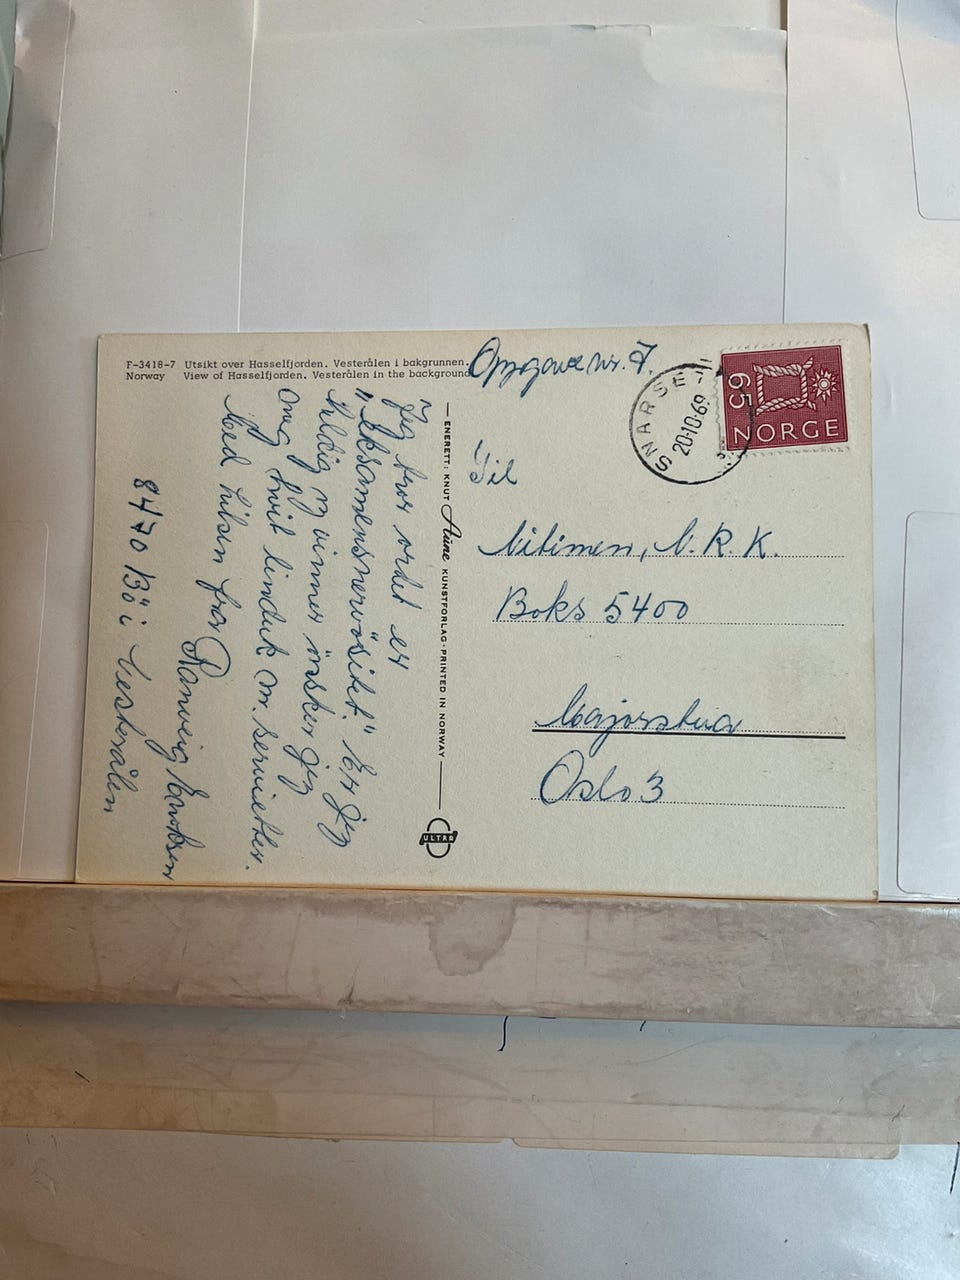 F-3418-7 Utsikt over Hasselfjorden. Vesterålen i bakgrunnen.
Norway View of Hasselfjorden. Vesterålen in the background
Opgave nr. 7.
Jeg tror ordet er
"Eksamensnervösitet." Er jeg
heldig og vinner önsker jeg
meg hvit linduk m. servietter.
Med hilsen fra Ranveig Enoksen
8470 Bö i Vesterålen
ENERETT: KNUT Aune KUNSTFORLAG - PRINTED IN NORWAY
ULTRA
SNARSE
20.10.69
65
NORGE
Til
Nitimen, N.R.K.
Boks 5400
Majorstua
Oslo 3